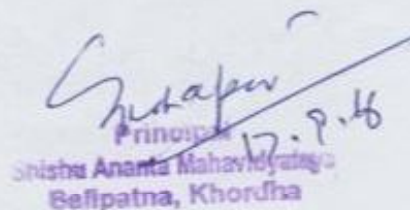 Principal
17.9.18
Shishu Ananta Mahavidyalaya
Bellpatna, Khordha